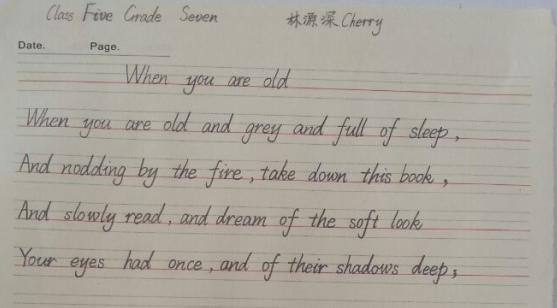 Class Five Grade Seven 林源深 Cherry
Date. Page.
When you are old
When you are old and grey and full of sleep,
And nodding by the fire, take down this book,
And slowly read, and dream of the soft look
Your eyes had once, and of their shadows deep;